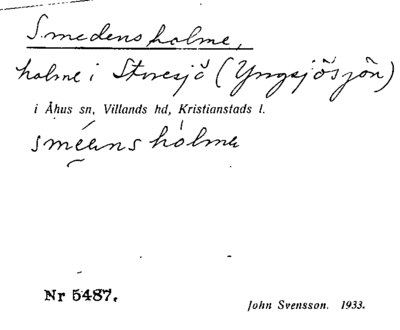 Smedensholme,
holme i Storesjö (Yngsjösjön)
i Åhus sn, Villands hd, Kristianstads l.
Nr 5487.
John Svensson. 1933.